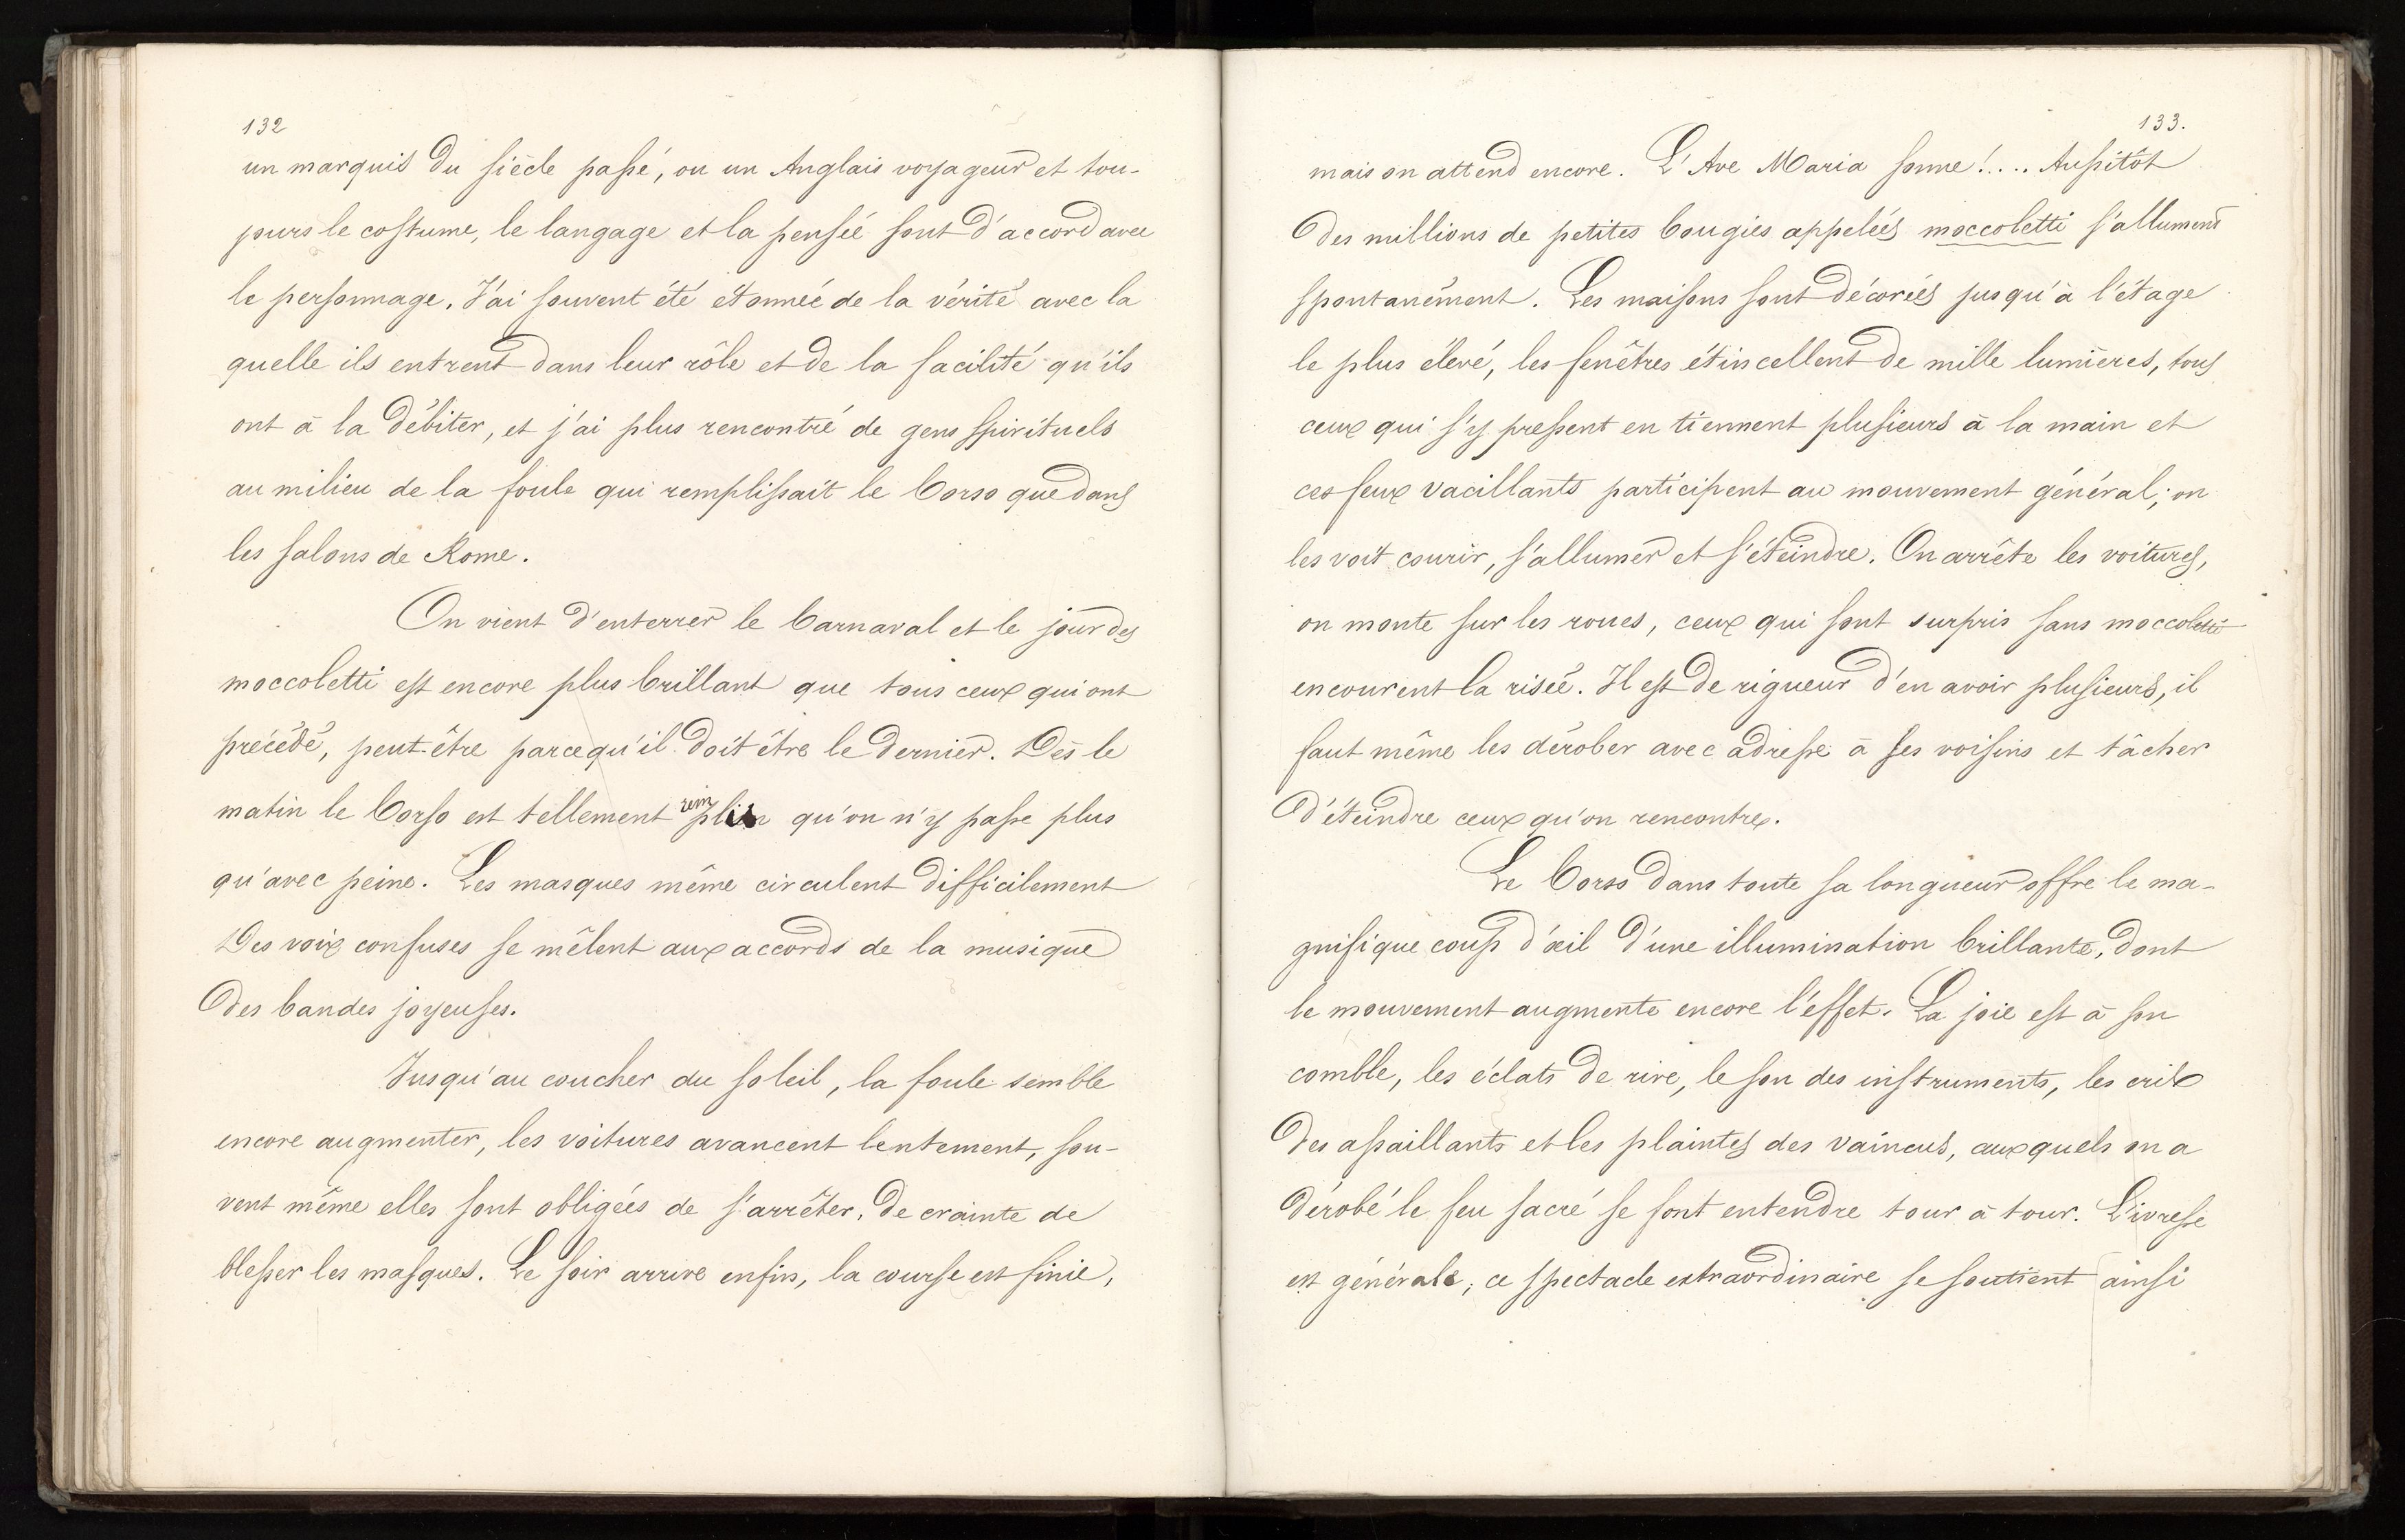 132
un marquis du siècle passé, ou un Anglais voyageur et tou-
jours le costume, le langage et la pensée sont d'accord avec
le personnage. J'ai souvent été étonnée de la vérité avec la
quelle ils entrent dans leur rôle et de la facilité qu'ils
ont à la débiter, et j'ai plus rencontré de gens spirituels
au milieu de la foule qui remplissait le Corso que dans
les salons de Rome.
On vient d'enterrer le Carnaval et le jour des
moccoletti est encore plus brillant que tous ceux qui ont
précédé, peut-être parcequ'il doit être le dernier. Dès le
matin le Corso est tellement rempli qu'on n'y passe plus
qu'avec peine. Les masques même circulent difficilement
Des voix confuses se mêlent aux accords de la musique
des bandes joyeuses.
Jusqu'au coucher du soleil, la foule semble
encore augmenter, les voitures avancent lentement, sou-
vent même elles sont obligées de s'arrêter, de crainte de
blesser les masques. Le soir arrive enfin, la course est finie,
133.
mais on attend encore. L'Ave Maria sonne!.... Aussitôt
des millions de petites bougies appelées moccoletti s'allument
spontanément. Les maisons sont décorées jusqu'à l'étage
le plus élevé, les fenêtres étincellent de mille lumières, tous
ceux qui s'y pressent en tiennent plusieurs à la main et
ces feux vacillants participent au mouvement général; on
les voit courir, s'allumer et s'éteindre. On arrête les voitures,
on monte sur les roues, ceux qui sont surpris sans moccoletti
encourent la risée. Il est de rigueur d'en avoir plusieurs, il
faut même les dérober avec adresse à ses voisins et tâcher
d'éteindre ceux qu'on rencontre.
Le Corso dans toute sa longueur offre le ma-
gnifique coup d'œil d'une illumination brillante, dont
le mouvement augmente encore l'effet. La joie est à son
comble, les éclats de rire, le son des instruments, les cris
des assaillants et les plaintes des vaincus, auxquels on a
dérobé le feu sacré se font entendre tour à tour. L'ivresse
est générale; ce spectacle extraordinaire se soutient ainsi